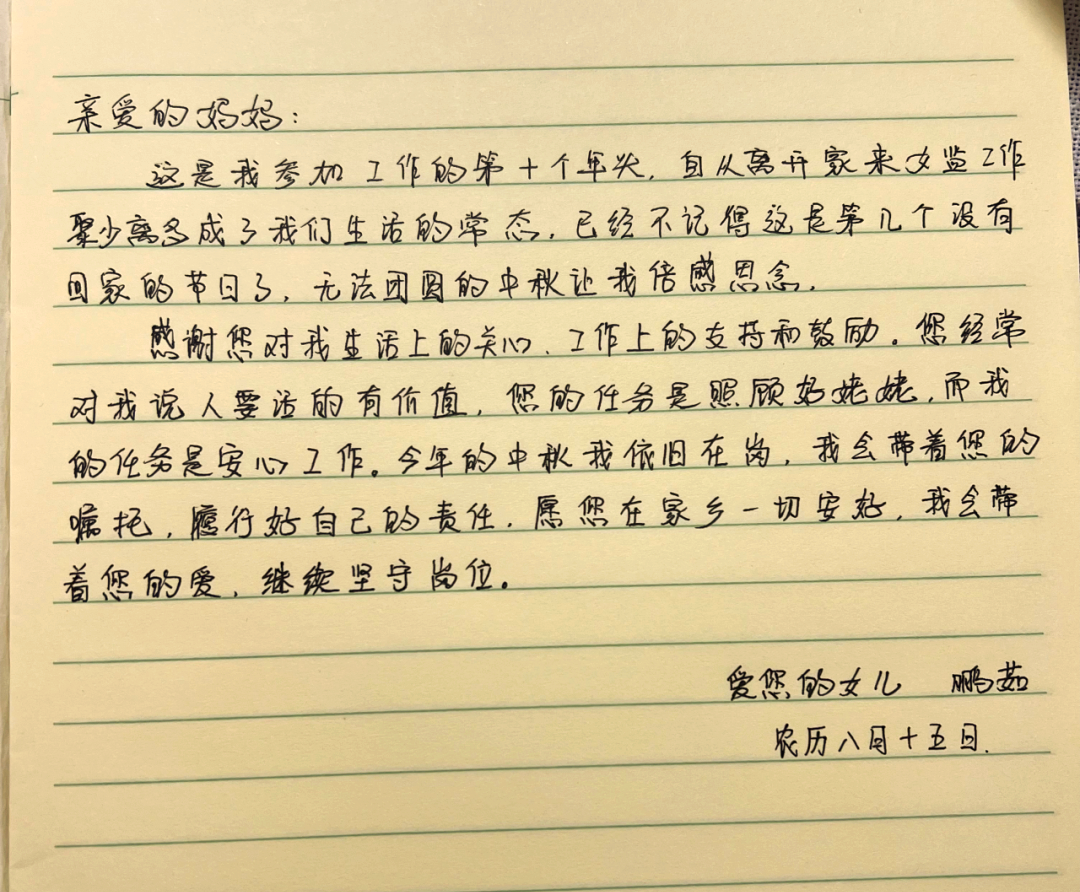 亲爱的妈妈：
这是我参加工作的第十个年头，自从离开家来女监工作
聚少离多成了我们生活的常态，已经不记得这是第几个没有
回家的节日了，无法团圆的中秋让我倍感思念，
感谢您对我生活上的关心、工作上的支持和鼓励。您经常
对我说人要活的有价值，您的任务是照顾好姥姥，而我
的任务是安心工作。今年的中秋我依旧在岗，我会带着您的
嘱托，履行好自己的责任，愿您在家乡一切安好，我会带
着您的爱，继续坚守岗位。
爱您的女儿 鹏茹
农历八月十五日.